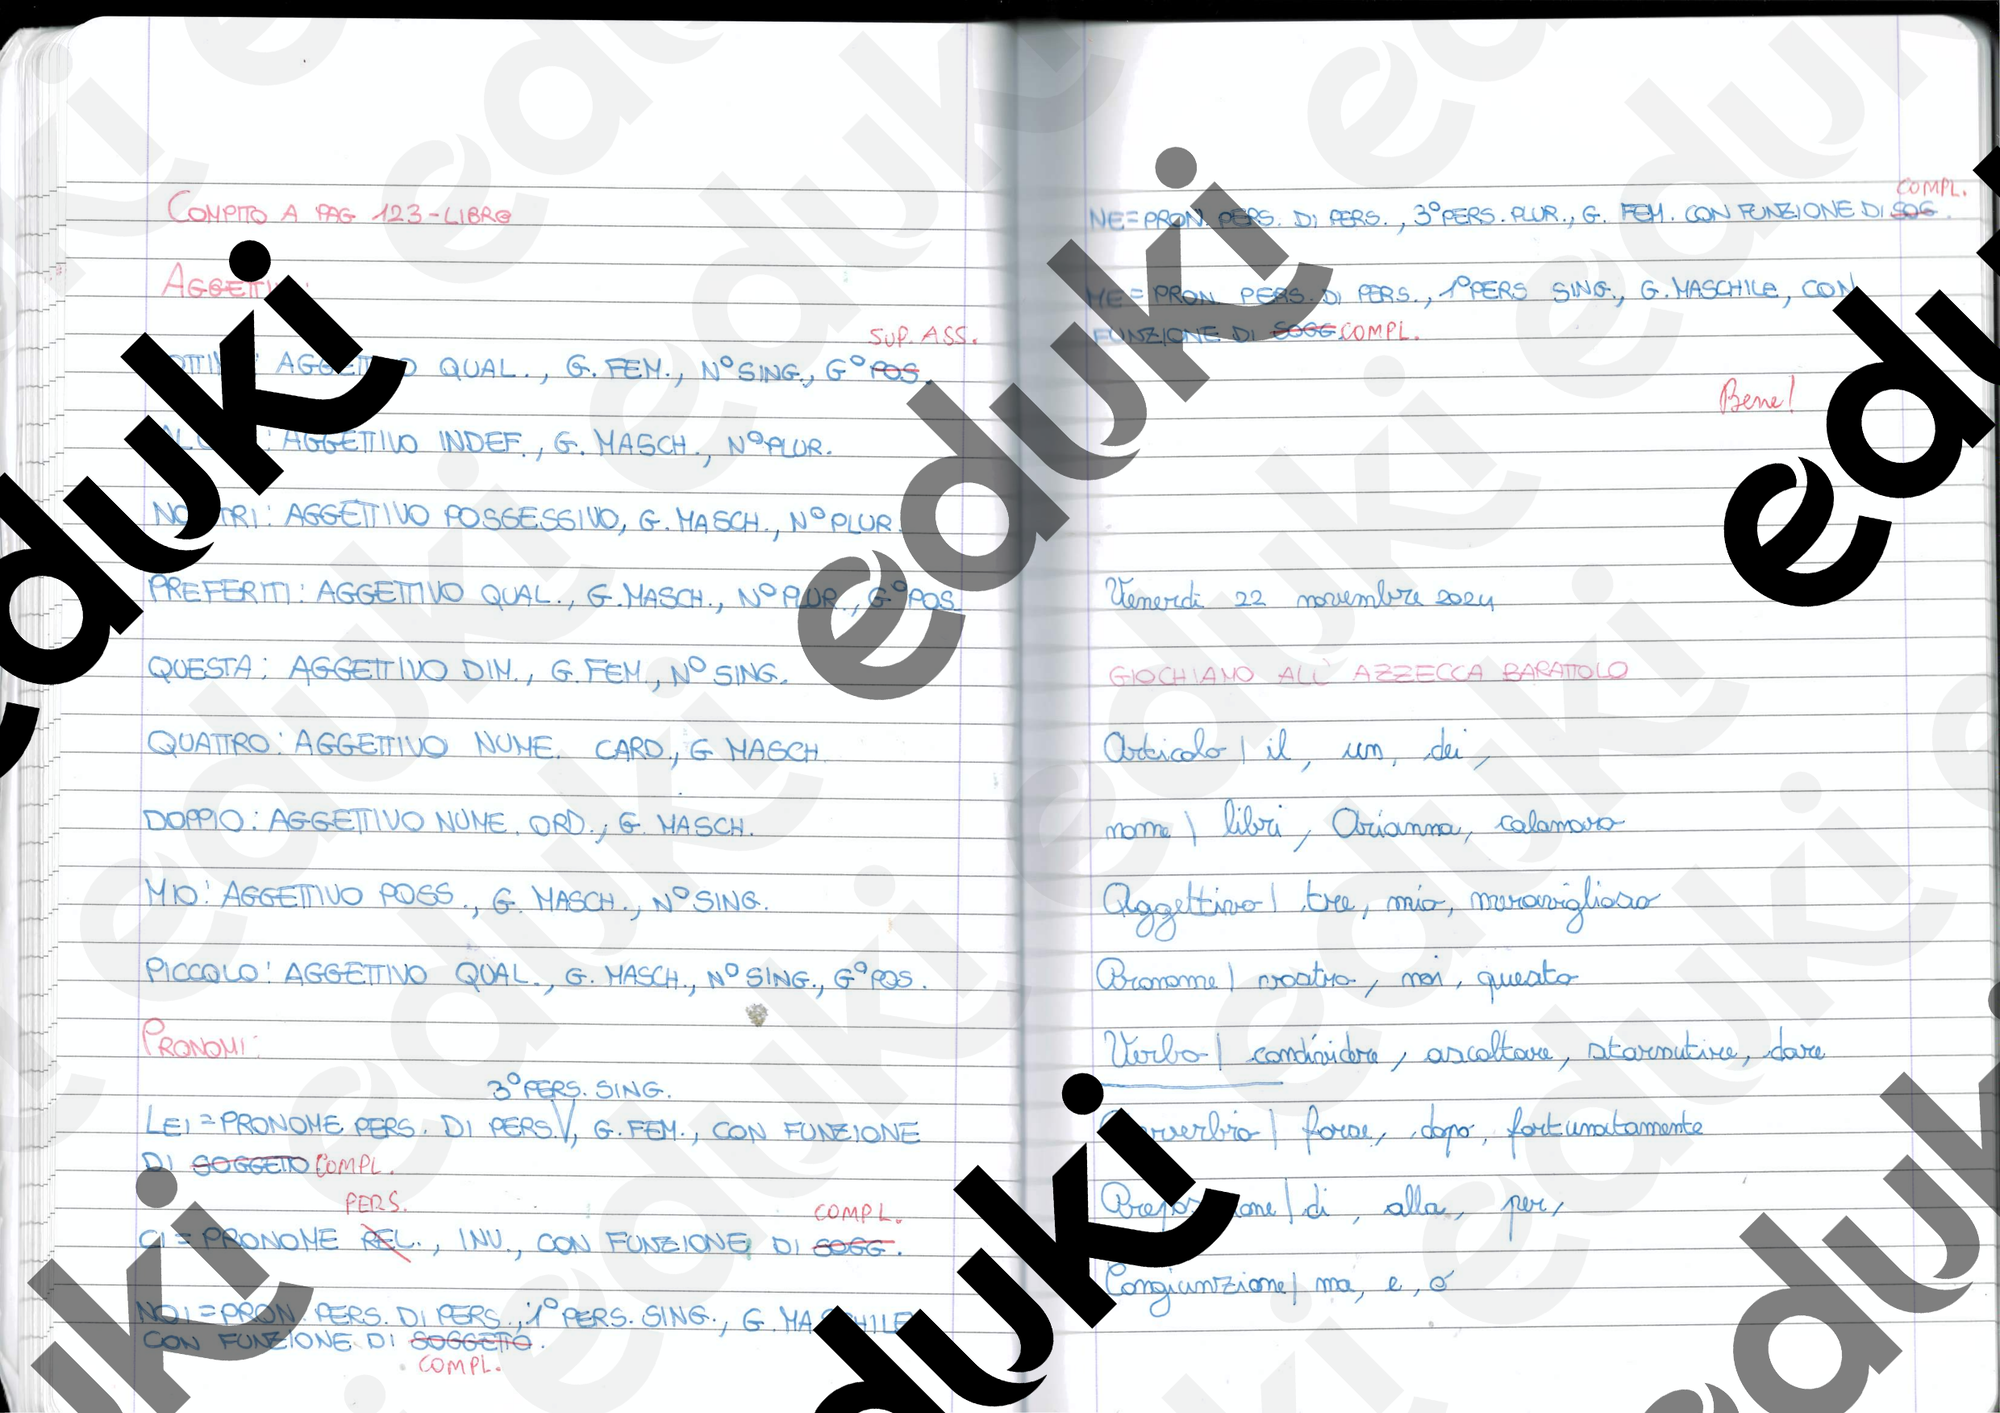 COMPITO A PAG 123-LIBRO
SUP. ASS.
AGGETTIVO QUAL., G. FEM., N° SING., G° POS.
: AGGETTIVO INDEF., G. MASCH., N° PLUR.
NOSTRI: AGGETTIVO POSSESSIVO, G. MASCH., N° PLUR.
PREFERITI: AGGETTIVO QUAL., G. MASCH., N° PLUR., G° POS.
QUESTA: AGGETTIVO DIM., G. FEM., N° SING.
QUATTRO: AGGETTIVO NUME. CARD., G MASCH.
DOPPIO: AGGETTIVO NUME. ORD., G. MASCH.
MIO: AGGETTIVO POSS., G. MASCH., N° SING.
PICCOLO: AGGETTIVO QUAL., G. MASCH., N° SING., G° POS.
PRONOMI:
3° PERS. SING.
LEI = PRONOME PERS. DI PERS. V, G. FEM., CON FUNZIONE
DI SOGGETTO COMPL.
PERS. COMPL.
CI = PRONOME REL., INV., CON FUNZIONE DI SOGG.
NOI = PRON. PERS. DI PERS., 1° PERS. SING., G. MASCHILE
CON FUNZIONE DI SOGGETTO.
COMPL.
COMPL.
NE = PRON. PERS. DI PERS., 3° PERS. PLUR., G. FEM. CON FUNZIONE DI SOG.
ME = PRON. PERS. DI PERS., 1° PERS SING., G. MASCHILE, CON
FUNZIONE DI SOGG COMPL.
Bene!
Venerdì 22 novembre 2024
GIOCHIAMO ALL' AZZECCA BARATTOLO
Articolo | il, un, dei,
nome | libri, Arianna, calamaro
Aggettivo | tre, mio, meraviglioso
Pronome | vostro, noi, questo
Verbo | condividere, ascoltare, starnutire, dare
Avverbio | forse, dopo, fortunatamente
Preposizione | di, alla, per,
Congiunzione | ma, e, o
eduki
eduki
eduki
eduki
eduki
eduki